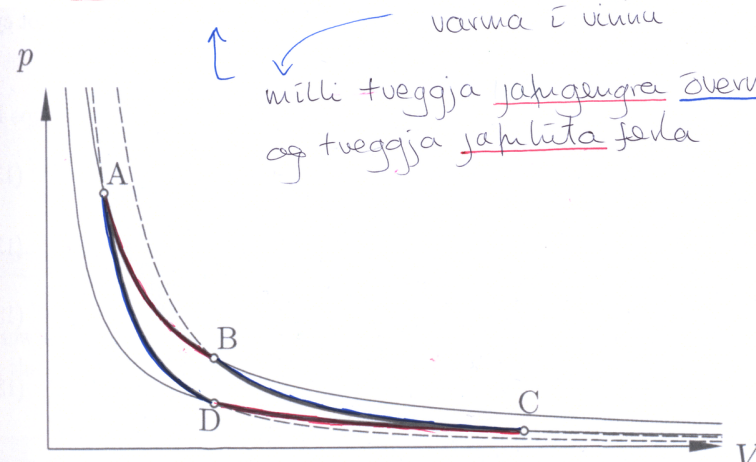 varma í vinnu
p
milli tveggja jafngengra
og tveggja jafnhita ferla
A
B
D
C
V